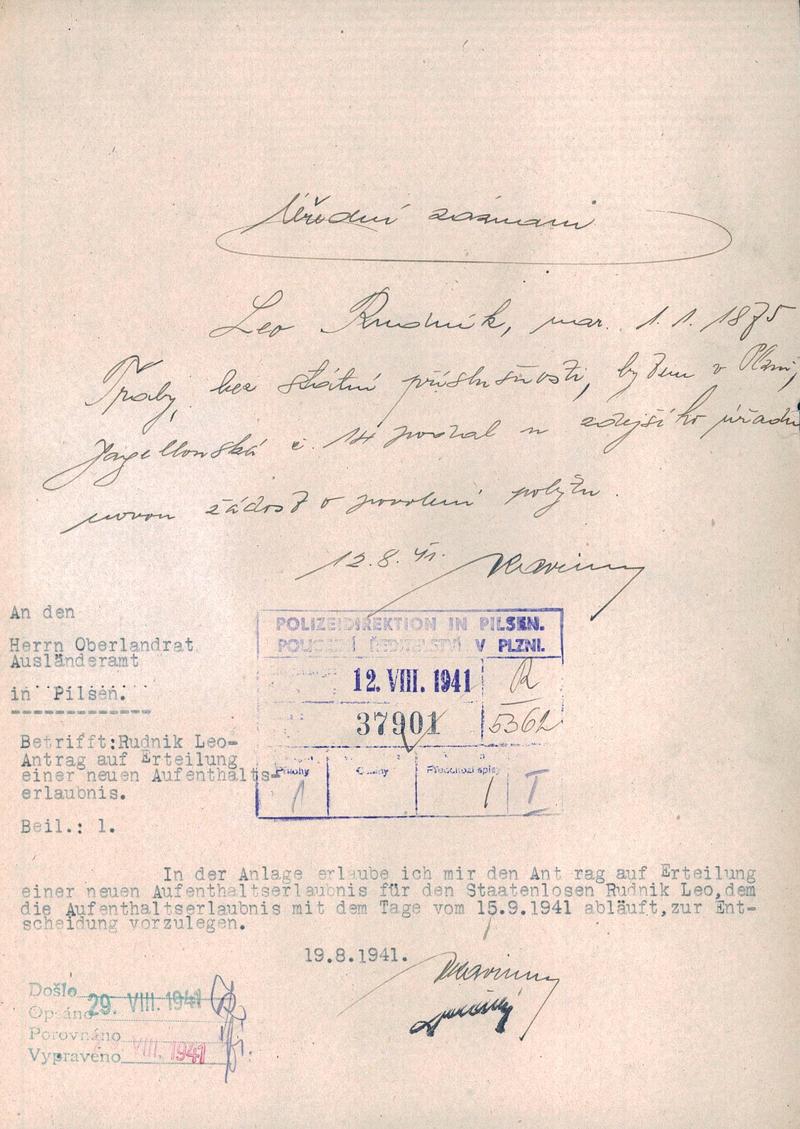 Úřední záznam
Leo Rudnik, nar. 1.1. 1875
Traby, bez státní příslušnosti, bytem v Plzni,
Jagellonská č. 14 podal u zdejšího úřadu
novou žádost o povolení pobytu.
12.8.41.
An den
Herrn Oberlandrat
Ausländeramt
in Pilsen.
POLIZEIDIREKTION IN PILSEN.
POLICEJNÍ ŘEDITELSTVÍ V PLZNI.
12. VIII. 1941 R
37901 5362
Přílohy Předchozí spisy
1 1 I
Betrifft:Rudnik Leo-
Antrag auf Erteilung
einer neuen Aufenthalts-
erlaubnis.
Beil.: 1.
In der Anlage erlaube ich mir den Ant rag auf Erteilung
einer neuen Aufenthaltserlaubnis für den Staatenlosen Rudnik Leo,dem
die Aufenthaltserlaubnis mit dem Tage vom 15.9.1941 abläuft,zur Ent-
scheidung vorzulegen.
19.8.1941.
Došlo
Opsáno 29. VIII. 1941
Porovnáno
Vypraveno VIII. 1941